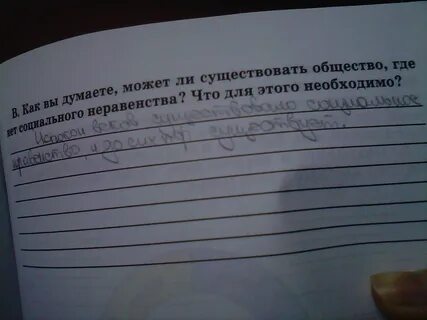 В. Как вы думаете, может ли существовать общество, где
нет социального неравенства? Что для этого необходимо?
Испокон веков существовало социальное
неравенство, и до сих пор существует.